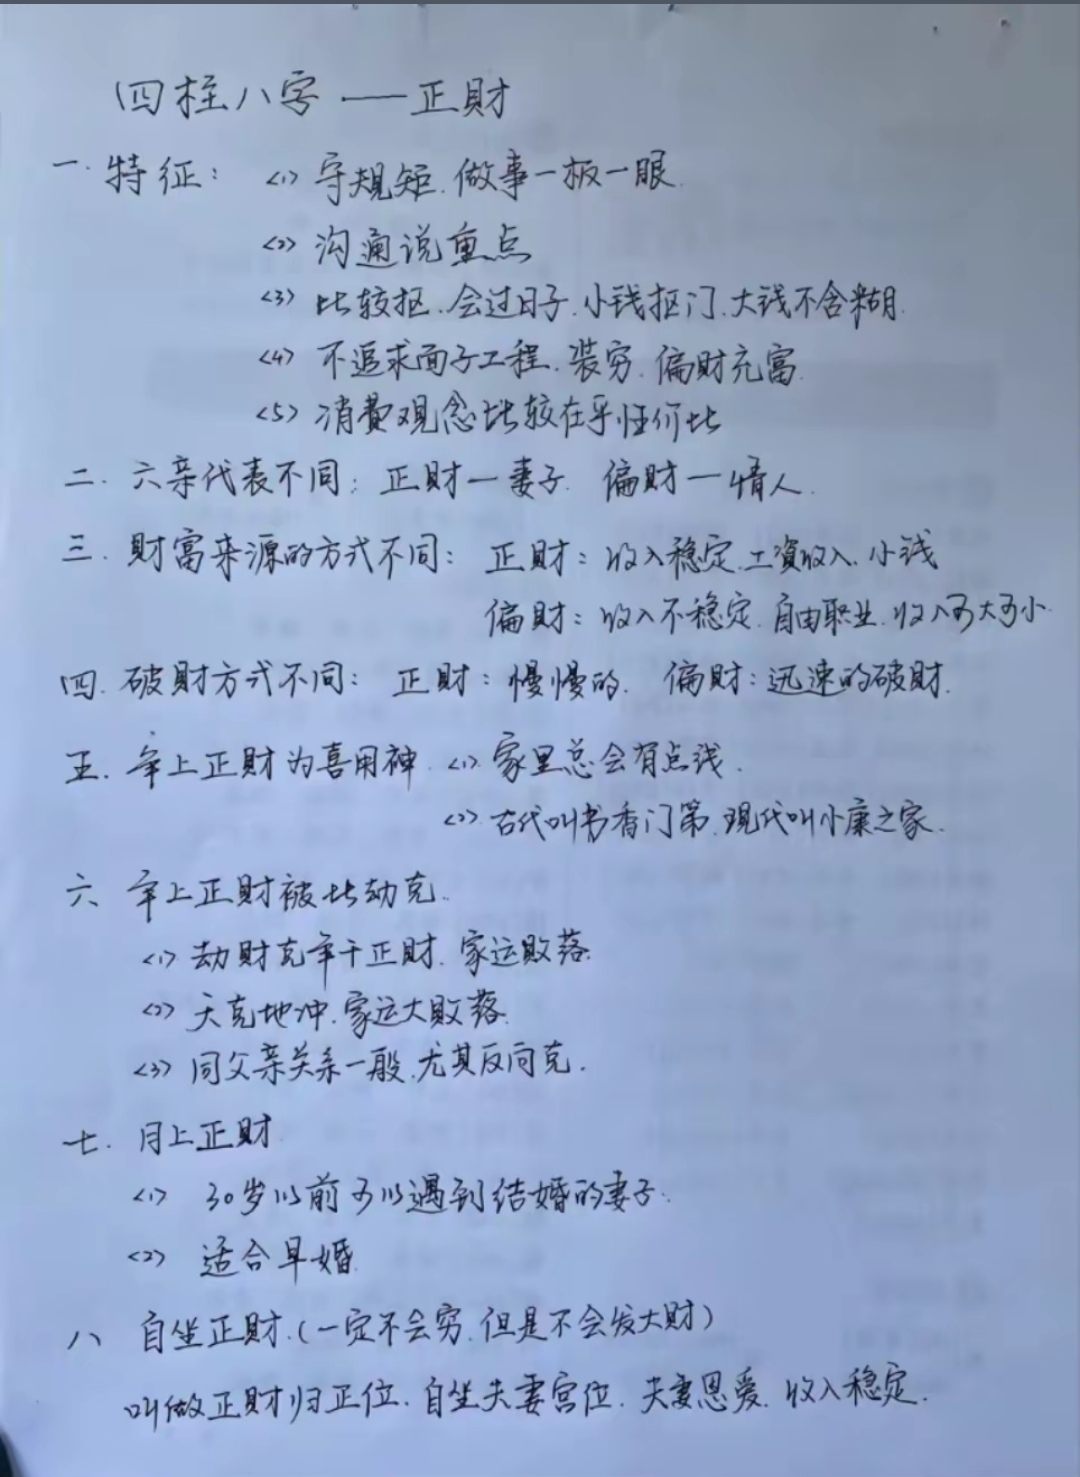 四柱八字——正財
一.特征：<1>守规矩.做事一板一眼.
<2>沟通说重点
<3>比较抠.会过日子.小钱抠门.大钱不含糊.
<4>不追求面子工程.装穷.偏財充富.
<5>消费观念比较在乎性价比
二.六亲代表不同：正財—妻子.偏財—情人.
三.財富来源的方式不同：正財：收入稳定.工資收入.小钱
偏財：收入不稳定.自由职业.收入可大可小.
四.破財方式不同：正財：慢慢的.偏財：迅速的破財.
五.年上正財为喜用神.<1>.家里总会有点钱.
<2>.古代叫书香门第.现代叫小康之家.
六 年上正財被比劫克.
<1>劫財克年干正財.家运败落.
<2>天克地冲.家运大败落.
<3>同父亲关系一般.尤其反向克.
七.月上正財.
<1>30岁以前可以遇到结婚的妻子.
<2>适合早婚.
八 自坐正財.(一定不会穷.但是不会发大财)
叫做正財归正位.自坐夫妻宫位.夫妻恩爱.收入稳定.